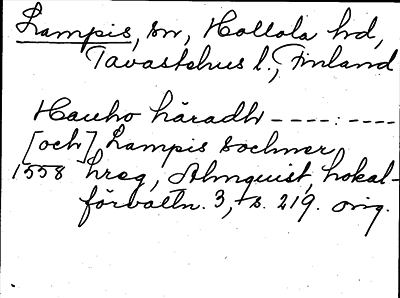 Lampis, sn, Hollola hd,
Tavastehus l., Finland
Hauho häradh ----:----
[och] Lampis sochner
1558 hreg, Almquist, Lokal-
förvaltn. 3, s. 219. orig.